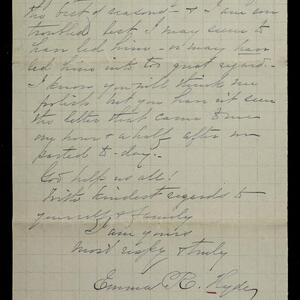 the best of reasons - & I am so
troubled lest I may seem to
han led him - or may han
led him into too great regard -
I know you will think me
foolish but you han't seen
the letter that came to me
an hour & a half after we
parted to-day.
God help us all!
With kindest regards to
yourself & family
I am yours
most resp'y & truly
Emma C. Hyde